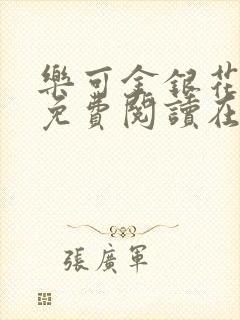 樂可金銀花
免費閱讀在
張廣軍